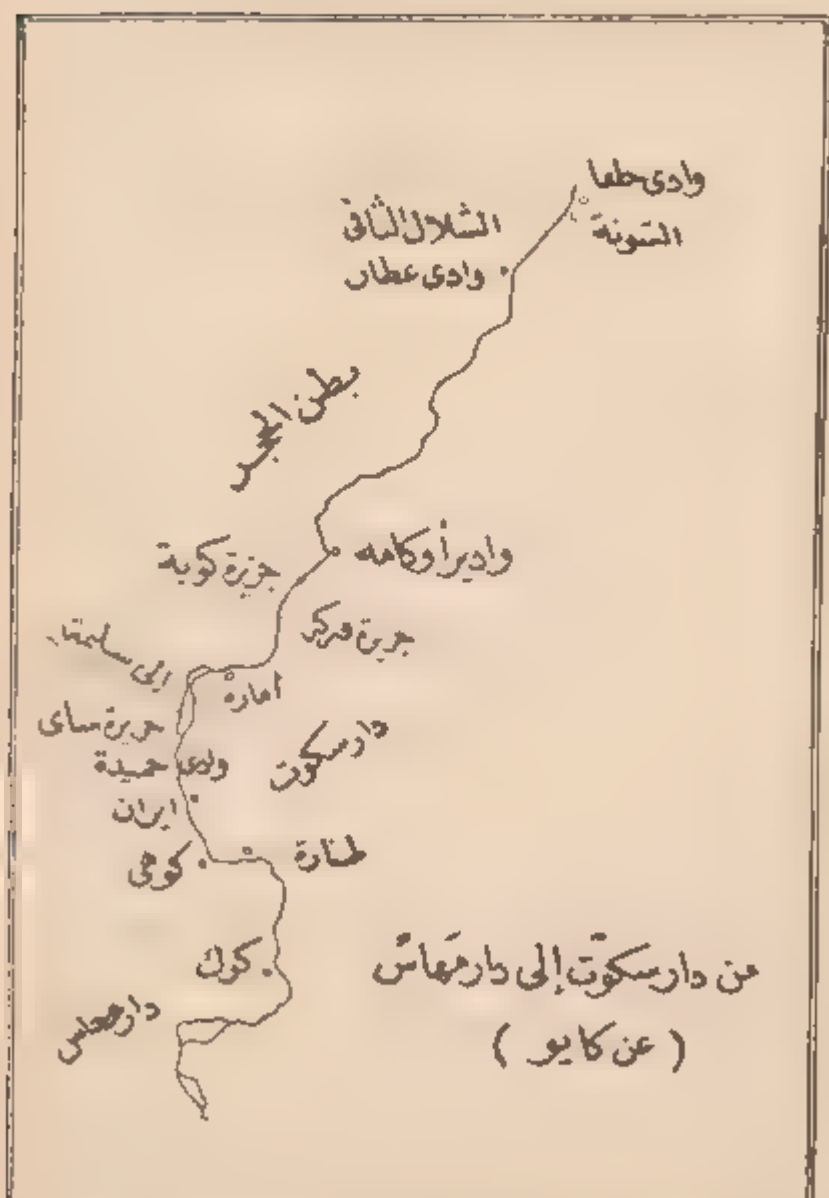 وادى حلفا
السونة
الشلال الثانى
وادى عطار
بطن الحجر
واديرأوكامه
جزيرة كوبة
جزيرة فركر
إلى سليمة
أمارة
جزيرة ساى
دار سكوت
وادى حميدة
ايران
طنارة
كوهى
كوك
من دار سكوّت إلى دار مَهاسّ
( عن كايو )